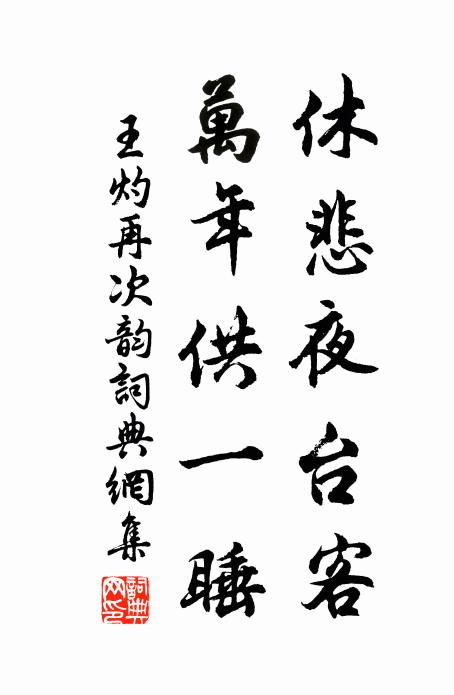 休悲夜台客
萬年供一睡
王灼再次韵詞典網集
詞典网印